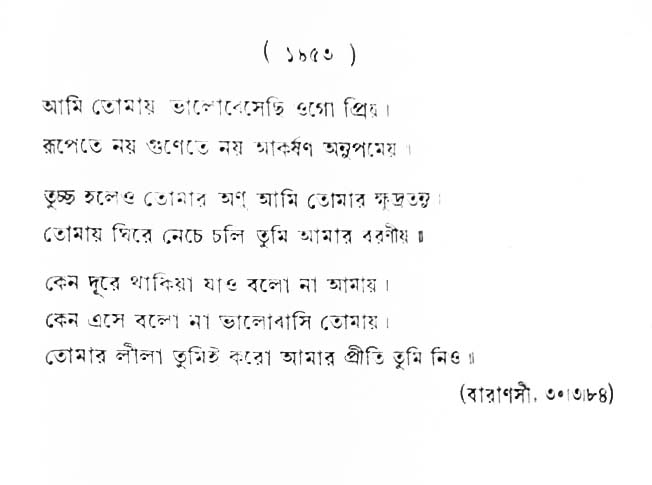 ( ১৯৫৩ )
আমি তোমায় ভালোবেসেছি ওগো প্রিয় ।
রূপেতে নয় গুণেতে নয় আকর্ষণ অনুপমেয় ।
তুচ্ছ হলেও তোমার অণু আমি তোমার ক্ষুদ্রতনু ।
তোমায় ঘিরে নেচে চলি তুমি আমার বরণীয় ॥
কেন দূরে থাকিয়া যাও বলো না আমায় ।
কেন এসে বলো না ভালোবাসি তোমায় ।
তোমার লীলা তুমিই করো আমার প্রীতি তুমি নিও ॥
(বারাণসী, ৩০।৩।৮৪)